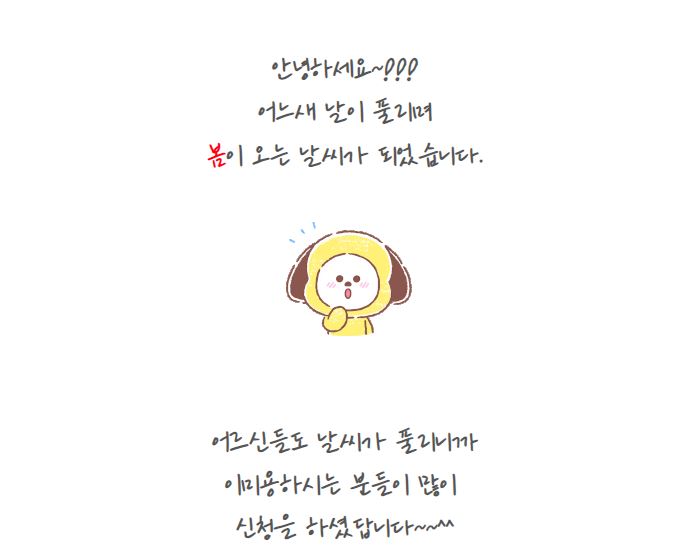 안녕하세요~!!!
어느새 날이 풀리며
봄이 오는 날씨가 되었습니다.
어르신들도 날씨가 풀리니까
이미용하시는 분들이 많이
신청을 하셨답니다~~^^